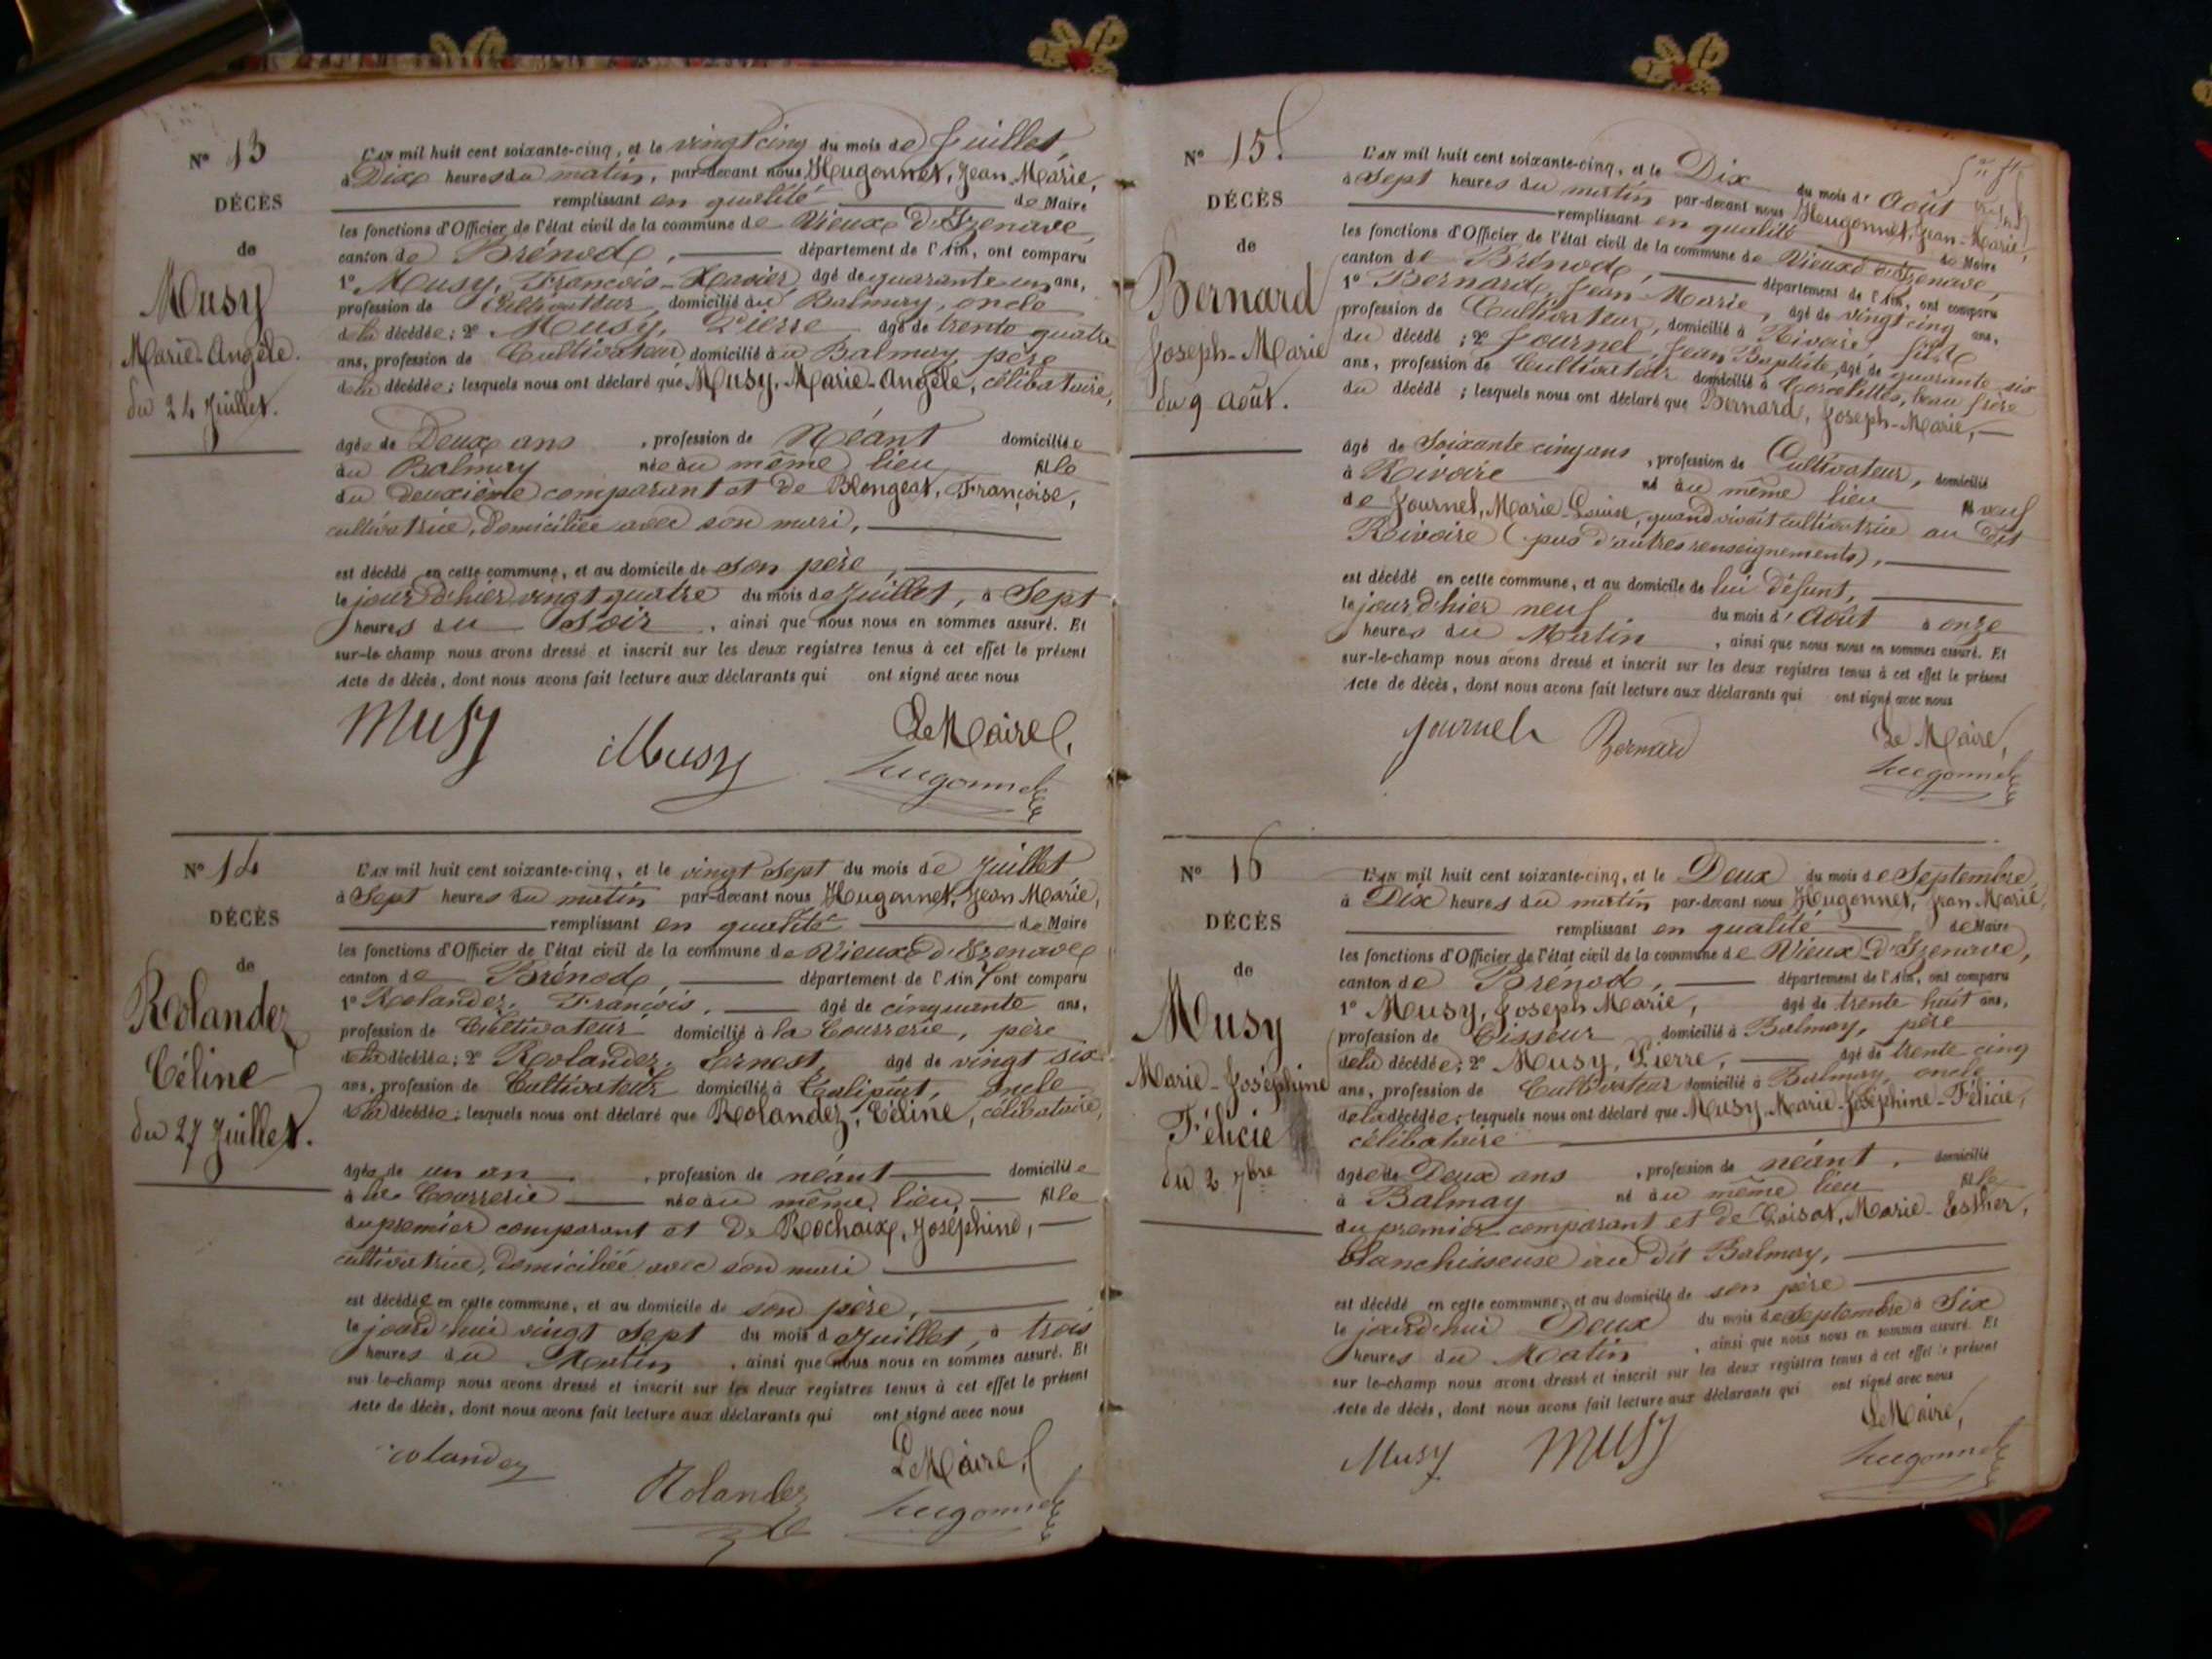 Nº 13
DÉCÈS
de
Musy
Marie-Angèle.
du 24 Juillet.
L'AN mil huit cent soixante-cinq, et le vingt cinq du mois de Juillet,
à Dix heures du matin, par-devant nous Hugonnet, Jean-Marie,
remplissant en qualité de Maire
les fonctions d'Officier de l'état civil de la commune de Vieux d'Izenave,
canton de Brénod, département de l'Ain, ont comparu
1º Musy, François-Xavier âgé de quarante un ans,
profession de Cultivateur, domicilié au Balmay, oncle
de la décédée; 2º Musy, Pierre âgé de trente quatre
ans, profession de Cultivateur domicilié au Balmay, père
de la décédée; lesquels nous ont déclaré que Musy, Marie-Angèle, célibataire,
âgée de Deux ans, profession de Néant domiciliée
au Balmay née au même lieu fille
du deuxième comparant et de Blengeat, Françoise,
cultivatrice, domiciliée avec son mari,
est décédé en cette commune, et au domicile de son père,
le jour d'hier vingt quatre du mois de Juillet, à Sept
heures du Soir, ainsi que nous nous en sommes assuré. Et
sur-le-champ nous avons dressé et inscrit sur les deux registres tenus à cet effet le présent
Acte de décès, dont nous avons fait lecture aux déclarants qui ont signé avec nous
Musy Musy Le Maire,
Hugonnet
Nº 14
DÉCÈS
de
Rolandez
Céline
du 27 Juillet.
L'AN mil huit cent soixante-cinq, et le vingt sept du mois de Juillet,
à Sept heures du matin par-devant nous Hugonnet, Jean Marie,
remplissant en qualité de Maire
les fonctions d'Officier de l'état civil de la commune de Vieux d'Izenave
canton de Brénod, département de l'Ain, ont comparu
1º Rolandez, François, âgé de cinquante ans,
profession de Cultivateur domicilié à la Courrerie, père
de la décédée; 2º Rolandez, Ernest, âgé de vingt six
ans, profession de Cultivateur domicilié à oncle
de la décédée; lesquels nous ont déclaré que Rolandez, Céline, célibataire,
âgée de un an, profession de néant domiciliée
à la Courrerie née au même lieu, fille
du premier comparant et de Rochaix, Joséphine,
cultivatrice, domiciliée avec son mari
est décédée en cette commune, et au domicile de son père,
le jourd'hui vingt sept du mois de Juillet, à trois
heures du Matin, ainsi que nous nous en sommes assuré. Et
sur-le-champ nous avons dressé et inscrit sur les deux registres tenus à cet effet le présent
Acte de décès, dont nous avons fait lecture aux déclarants qui ont signé avec nous
Rolandez Rolandez Le Maire,
Hugonnet
Nº 15
DÉCÈS
de
Bernard
Joseph-Marie
du 9 Août.
L'AN mil huit cent soixante-cinq, et le Dix du mois d'Août
à Sept heures du matin par-devant nous Hugonnet, Jean-Marie,
remplissant en qualité de Maire
les fonctions d'Officier de l'état civil de la commune de Vieux d'Izenave,
canton de Brénod, département de l'Ain, ont comparu
1º Bernard, Jean Marie, âgé de vingt cinq ans,
profession de Cultivateur, domicilié à Rivoire, fils
du décédé; 2º Journel, Jean Baptiste, âgé de quarante six
ans, profession de Cultivateur domicilié à Corcelettes, beau frère
du décédé; lesquels nous ont déclaré que Bernard, Joseph-Marie,
âgé de Soixante cinq ans, profession de Cultivateur, domicilié
à Rivoire né au même lieu veuf
de Journel, Marie-Louise, quand vivait cultivatrice au dit
Rivoire (pas d'autres renseignements),
est décédé en cette commune, et au domicile de lui défunt,
le jour d'hier neuf du mois d'Août à onze
heures du Matin, ainsi que nous nous en sommes assuré. Et
sur-le-champ nous avons dressé et inscrit sur les deux registres tenus à cet effet le présent
Acte de décès, dont nous avons fait lecture aux déclarants qui ont signé avec nous
Journel Bernard Le Maire,
Hugonnet
Nº 16
DÉCÈS
de
Musy
Marie-Joséphine
Félicie
du 2 7bre
L'AN mil huit cent soixante-cinq, et le Deux du mois de Septembre,
à Dix heures du matin par-devant nous Hugonnet, Jean Marie,
remplissant en qualité de Maire
les fonctions d'Officier de l'état civil de la commune de Vieux-d'Izenave,
canton de Brénod, département de l'Ain, ont comparu
1º Musy, Joseph Marie, âgé de trente huit ans,
profession de Tisseur domicilié à Balmay, père
de la décédée; 2º Musy, Pierre, âgé de trente cinq
ans, profession de Cultivateur domicilié à Balmay, oncle
de la décédée; lesquels nous ont déclaré que Musy, Marie-Joséphine-Félicie,
célibataire
âgée de Deux ans, profession de néant, domicilié
à Balmay né au même lieu fille
du premier comparant et de Goisat, Marie-Esther,
blanchisseuse au dit Balmay,
est décédé en cette commune, et au domicile de son père
le jourd'hui Deux du mois de Septembre à Six
heures du Matin, ainsi que nous nous en sommes assuré. Et
sur-le-champ nous avons dressé et inscrit sur les deux registres tenus à cet effet le présent
Acte de décès, dont nous avons fait lecture aux déclarants qui ont signé avec nous
Musy Musy Le Maire,
Hugonnet